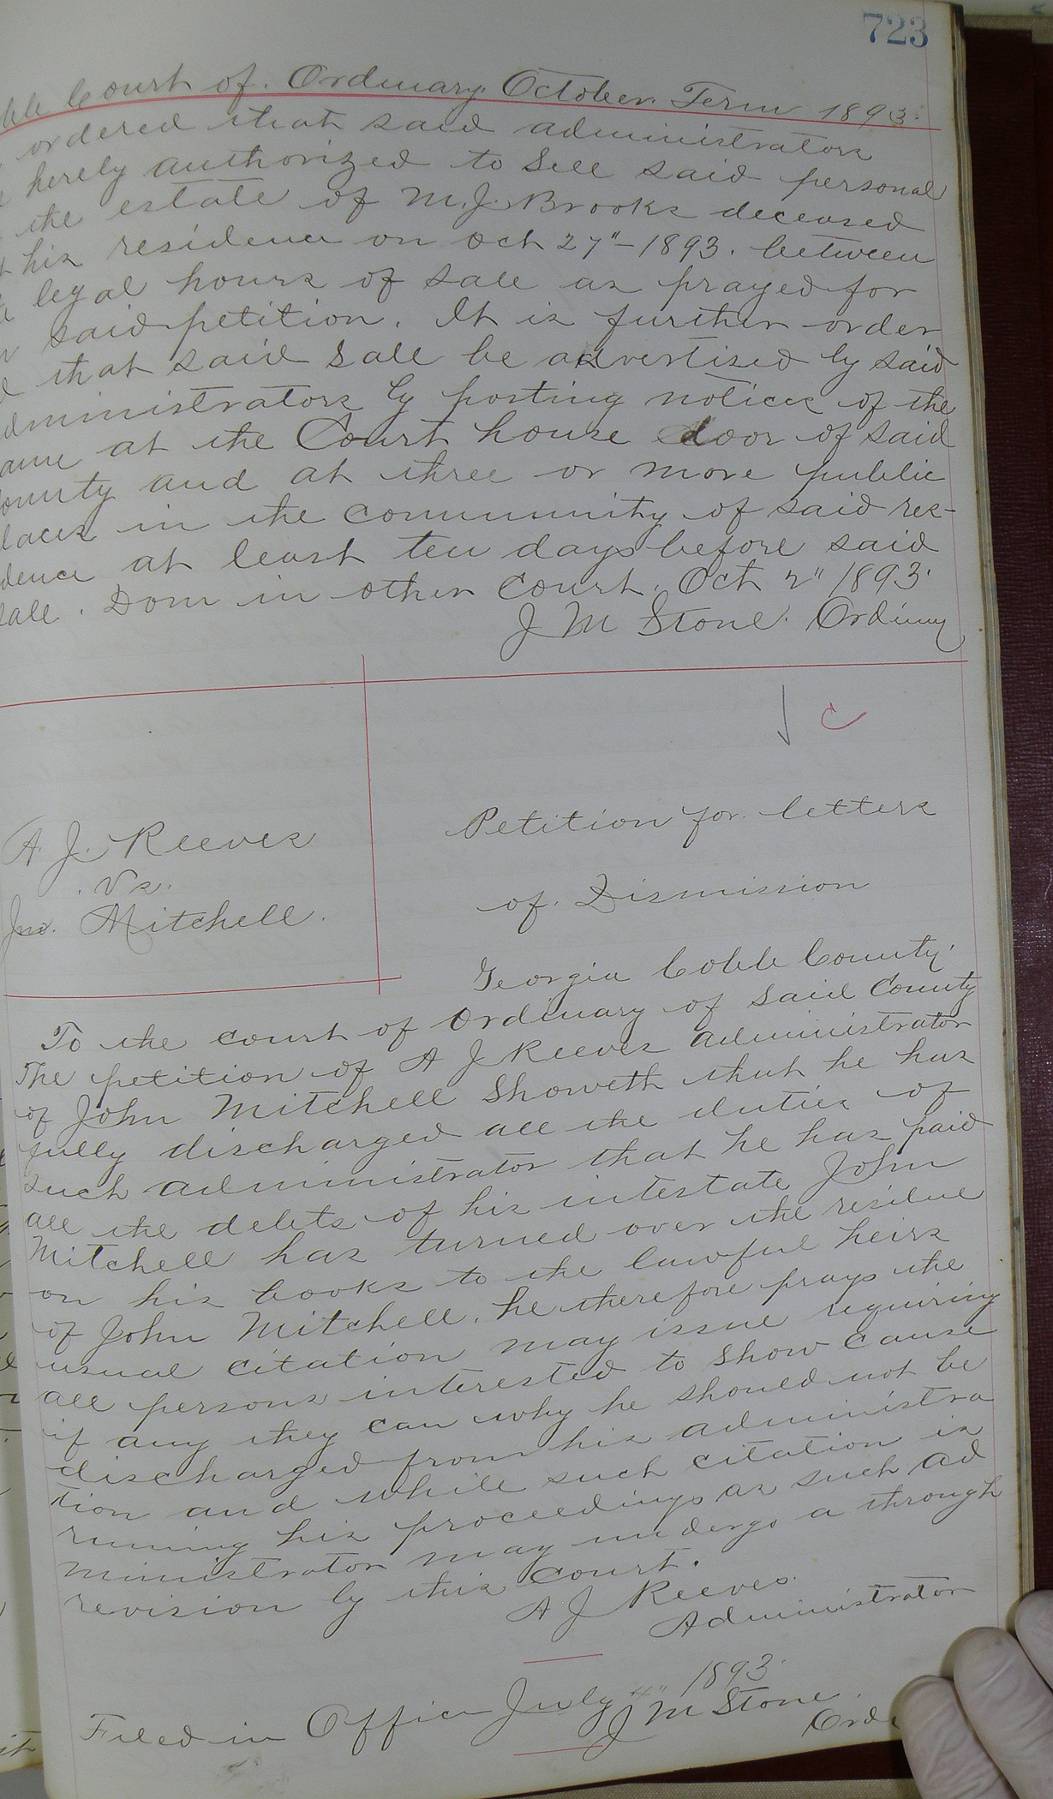 723
Court of Ordinary October Term 1893
ordered that said administrators
hereby authorized to sell said personal
the estate of M. J. Brooks deceased
his residence on Oct 27" - 1893. between
legal hours of sale as prayed for
said petition. It is further order
that said sale be advertised by said
dministrators by posting notices of the
ame at the Court house door of said
ounty and at three or more public
laces in the community of said res-
dence at least ten days before said
sale. Done in other Court. Oct 2" 1893.
J M Stone. Ordinary
c
A. J. Reeves
Vs.
Jno. Mitchell.
Petition for letters
of Dismission
Georgia Cobb County.
To the court of Ordinary of said County
The petition of A J Reeves administrator
of John Mitchell Showeth that he has
fully discharged all the duties of
such administrator that he has paid
all the debts of his intestate John
Mitchell has turned over the residue
on his books to the lawful heirs
of John Mitchell. he therefore prays the
usual citation may issue requiring
all persons interested to show cause
if any they can why he should not be
discharged from his administra
tion and while such citation is
running his proceedings as such ad
ministrator may undergo a through
revision by this Court.
A J Reeves.
Administrator
Filed in Office July 1893.
J M Stone.